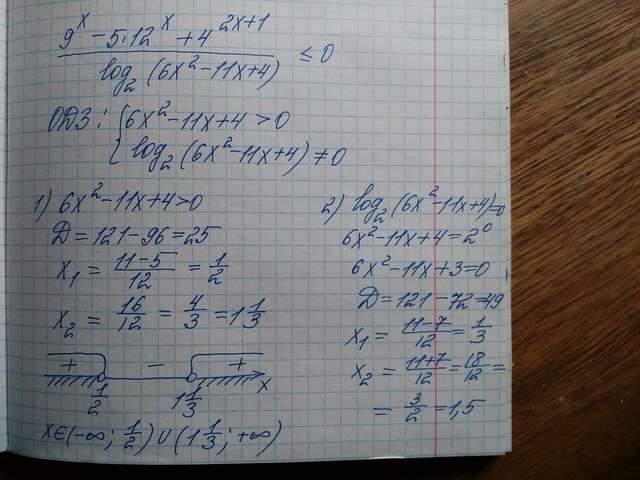 9^x − 5·12^x + 4^(2x+1)
log₂(6x² − 11x + 4) ≤ 0
ОДЗ: { 6x² − 11x + 4 > 0
log₂(6x² − 11x + 4) ≠ 0
1) 6x² − 11x + 4 > 0
D = 121 − 96 = 25
x₁ = (11−5)/12 = 1/2
x₂ = 16/12 = 4/3 = 1 1/3
+ − + x
1/2 1 1/3
x ∈ (−∞; 1/2) ∪ (1 1/3; +∞)
2) log₂(6x² − 11x + 4) = 0
6x² − 11x + 4 = 2⁰
6x² − 11x + 3 = 0
D = 121 − 72 = 49
x₁ = (11−7)/12 = 1/3
x₂ = (11+7)/12 = 18/12 =
= 3/2 = 1,5